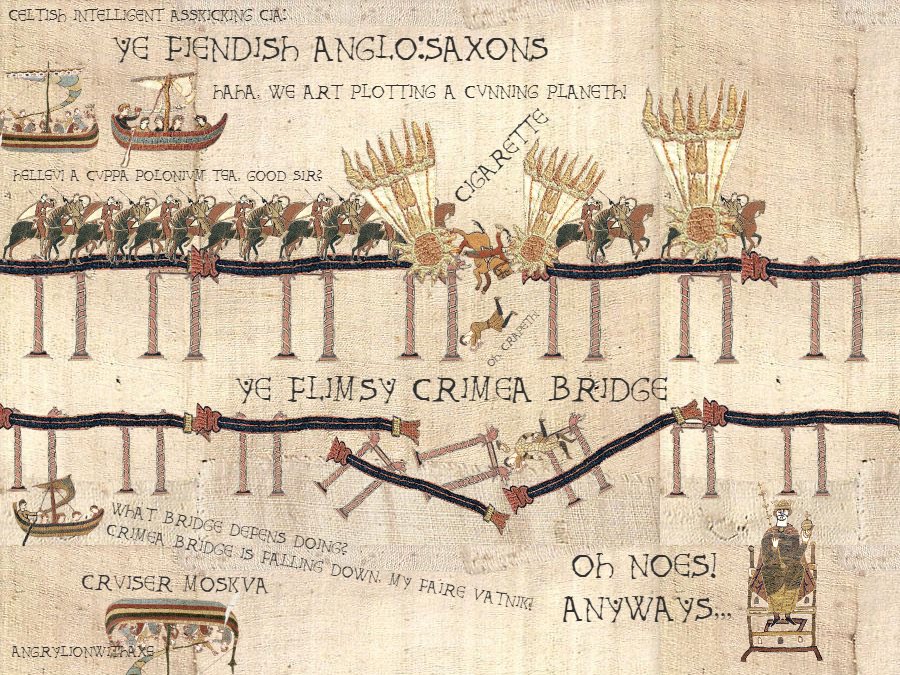 CELTISH INTELLIGENT ASSKICKING CIA:
YE FIENDISH ANGLO:SAXONS
HAHA, WE ART PLOTTING A CVNNING PLANETH!
CIGARETTE
HELLEV! A CVPPA POLONIVM TEA, GOOD SIR?
OH CRAPETH!
YE FLIMSY CRIMEA BRIDGE
WHAT BRIDGE DEFENS DOING?
CRIMEA BRIDGE IS FALLING DOWN, MY FAIRE VATNIK!
OH NOES!
ANYWAYS...
CRVISER MOSKVA
ANGRYLIONWITHAXE